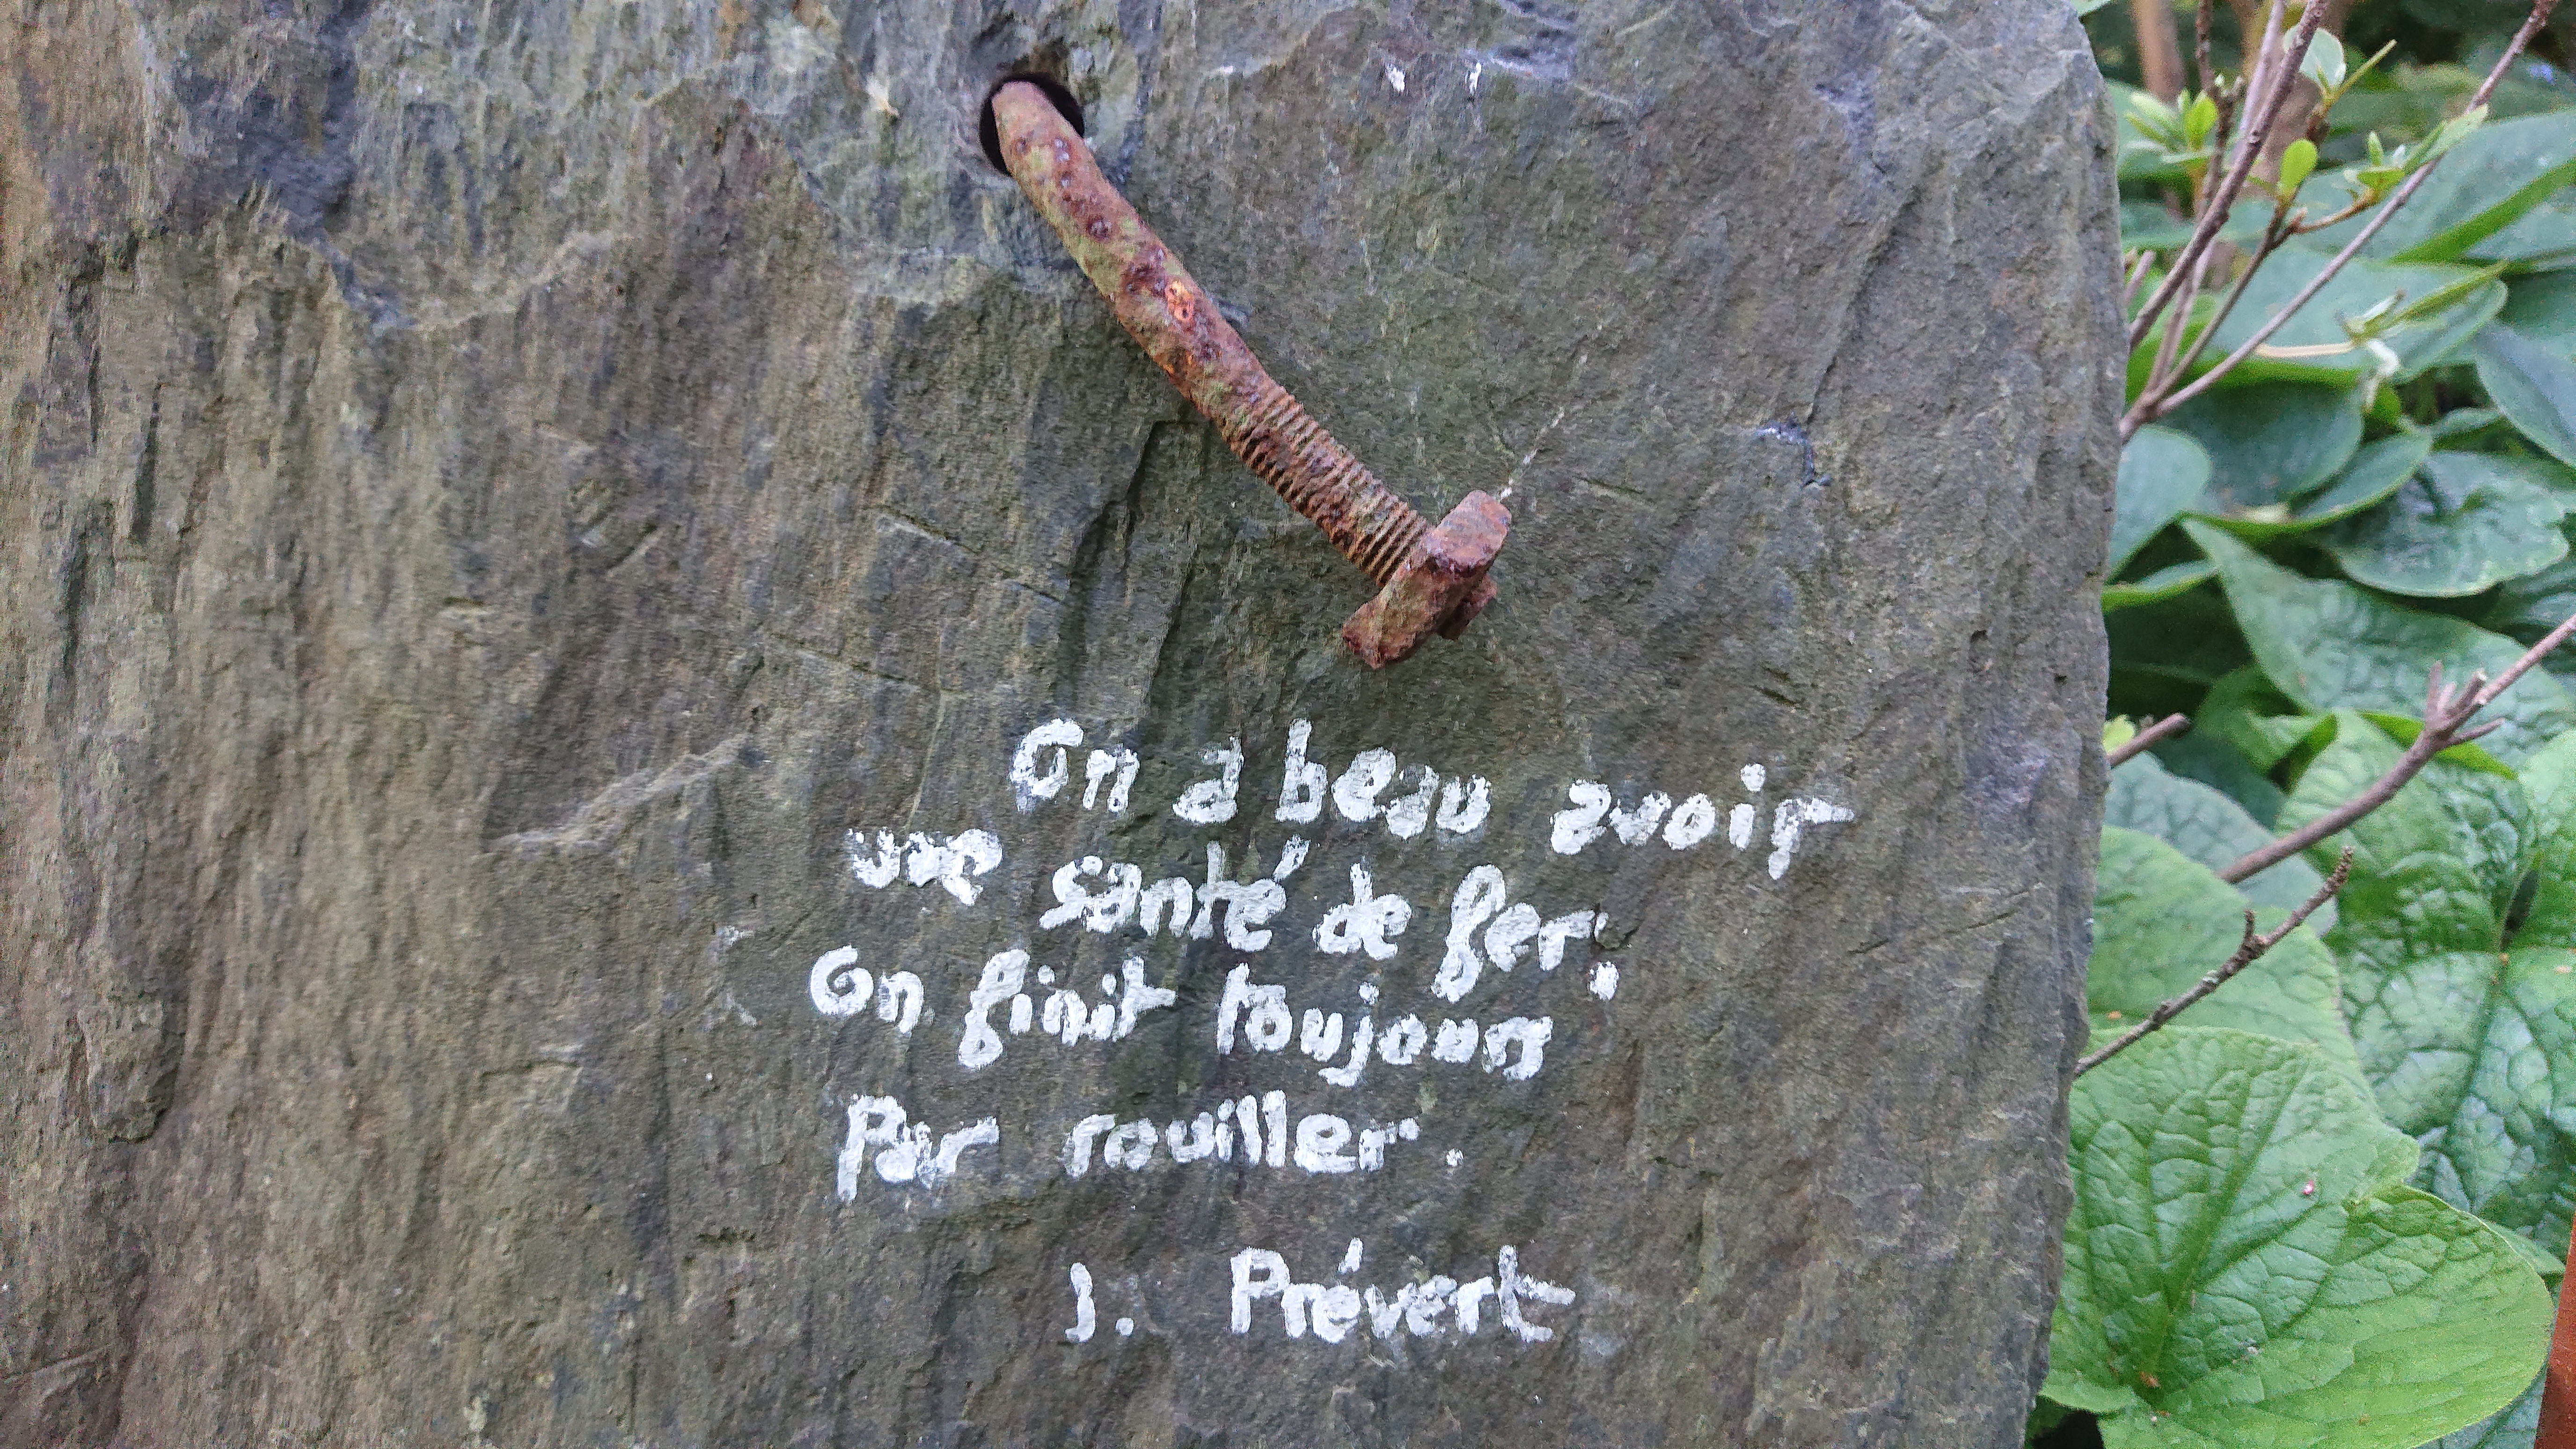 On a beau avoir
une santé de fer.
On finit toujours
Par rouiller.
J. Prévert